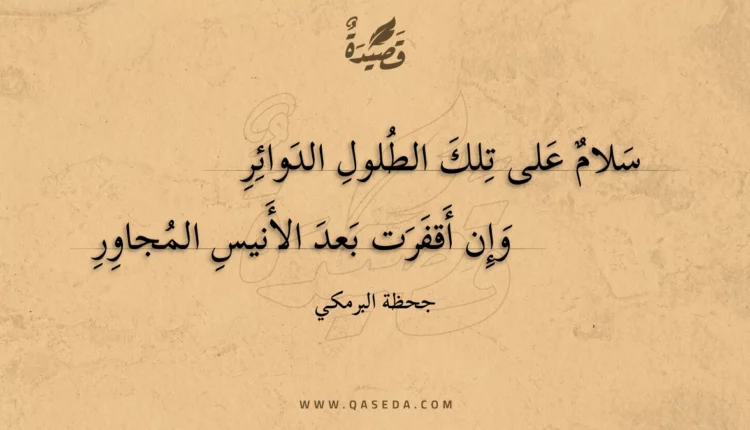 قَصِيدَةٌ
سَلامٌ عَلى تِلكَ الطُلولِ الدَوائِرِ
وَإِن أَقفَرَت بَعدَ الأَنيسِ المُجاوِرِ
جحظة البرمكي
WWW.QASEDA.COM